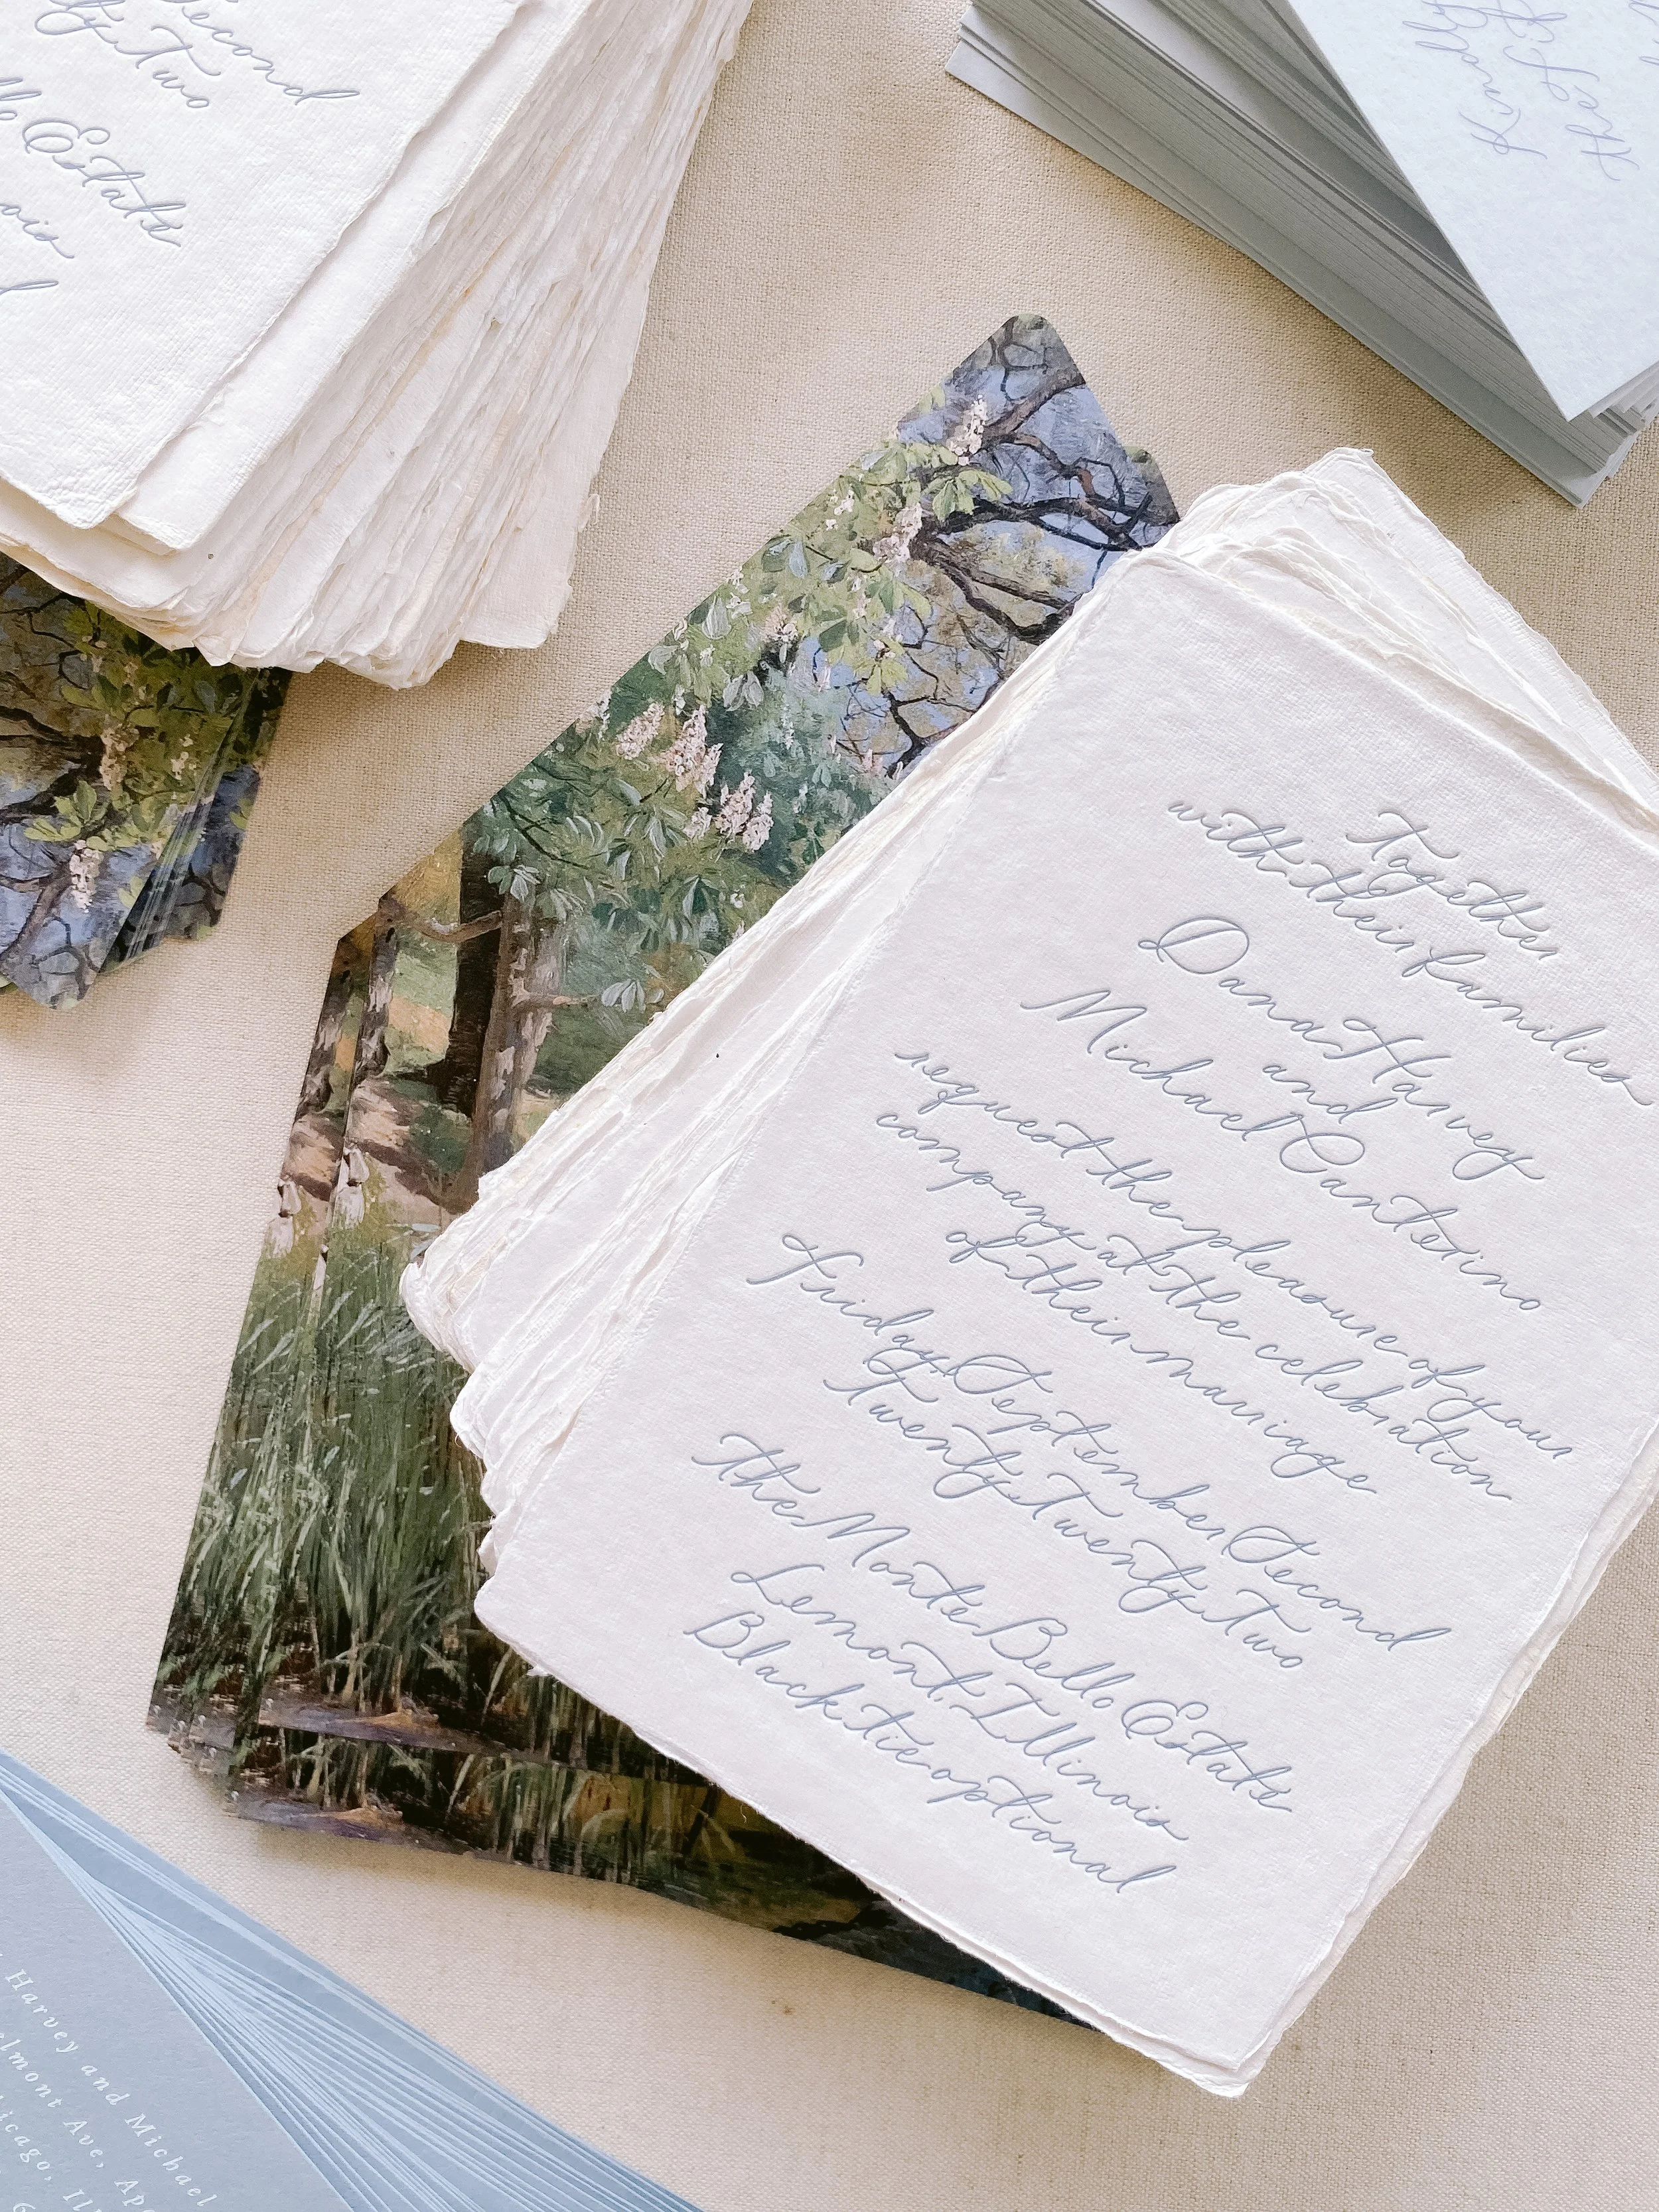 Second
Two
Estate
Together
with their families
Dana Harvey
and
Michael Canterino
request the pleasure of your
company at the celebration
of their marriage
Friday, September Second
Twenty Twenty Two
the Monte Bello Estate
Lemont, Illinois
Black tie optional
Harvey and Michael
Ave,